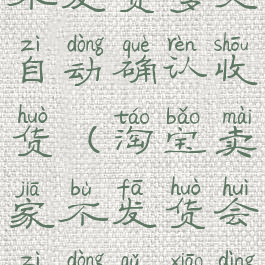 未发货多久
zì dòng què rèn shōu
自动确认收
huò táo bǎo mài
货（淘宝卖
jiā bù fā huò huì
家不发货会
zì dòng qǔ xiāo dìng